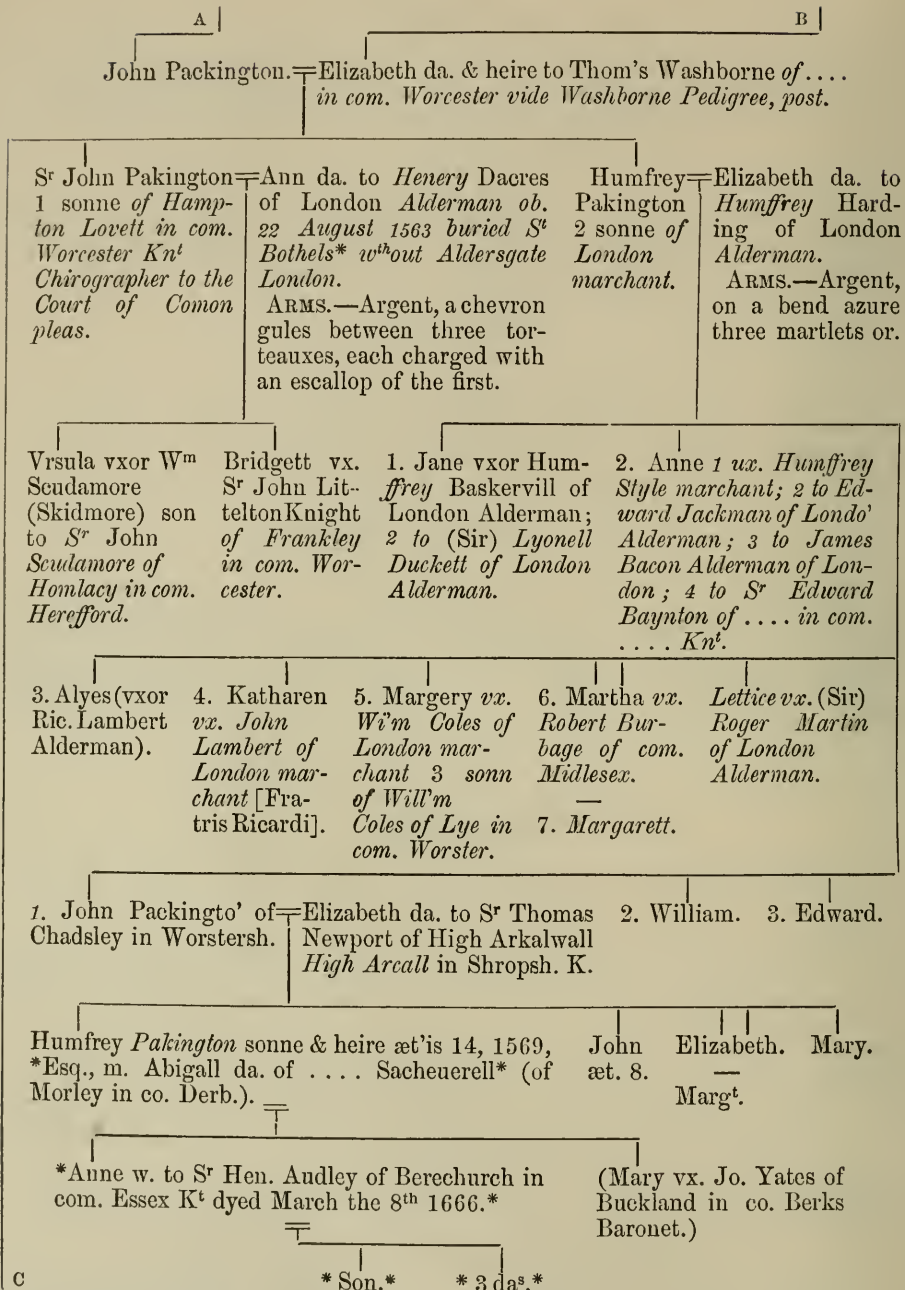 A
B
John Packington.
Elizabeth da. & heire to Thom's Washborne of....
in com. Worcester vide Washborne Pedigree, post.
Sr John Pakington
1 sonne of Hamp-
ton Lovett in com.
Worcester Knt
Chirographer to the
Court of Comon
pleas.
Ann da. to Henery Dacres
of London Alderman ob.
22 August 1563 buried St
Bothels* wthout Aldersgate
London.
ARMS.—Argent, a chevron
gules between three tor-
teauxes, each charged with
an escallop of the first.
Humfrey
Pakington
2 sonne of
London
marchant.
Elizabeth da. to
Humffrey Hard-
ing of London
Alderman.
ARMS.—Argent,
on a bend azure
three martlets or.
Vrsula vxor Wm
Scudamore
(Skidmore) son
to Sr John
Scudamore of
Homlacy in com.
Herefford.
Bridgett vx.
Sr John Lit-
telton Knight
of Frankley
in com. Wor-
cester.
1. Jane vxor Hum-
ffrey Baskervill of
London Alderman;
2 to (Sir) Lyonell
Duckett of London
Alderman.
2. Anne 1 ux. Humffrey
Style marchant; 2 to Ed-
ward Jackman of Londo'
Alderman; 3 to James
Bacon Alderman of Lon-
don; 4 to Sr Edward
Baynton of .... in com.
.... Knt.
3. Alyes (vxor
Ric. Lambert
Alderman).
4. Katharen
vx. John
Lambert of
London mar-
chant [Fra-
tris Ricardi].
5. Margery vx.
Wi'm Coles of
London mar-
chant 3 sonn
of Will'm
Coles of Lye in
com. Worster.
6. Martha vx.
Robert Bur-
bage of com.
Midlesex.
—
7. Margarett.
Lettice vx. (Sir)
Roger Martin
of London
Alderman.
1. John Packingto' of
Chadsley in Worstersh.
Elizabeth da. to Sr Thomas
Newport of High Arkalwall
High Arcall in Shropsh. K.
2. William.
3. Edward.
Humfrey Pakington sonne & heire æt'is 14, 1569,
*Esq., m. Abigall da. of .... Sacheuerell* (of
Morley in co. Derb.).
John
æt. 8.
Elizabeth.
—
Margt.
Mary.
*Anne w. to Sr Hen. Audley of Berechurch in
com. Essex Kt dyed March the 8th 1666.*
(Mary vx. Jo. Yates of
Buckland in co. Berks
Baronet.)
C
*Son.*
*3 das.*